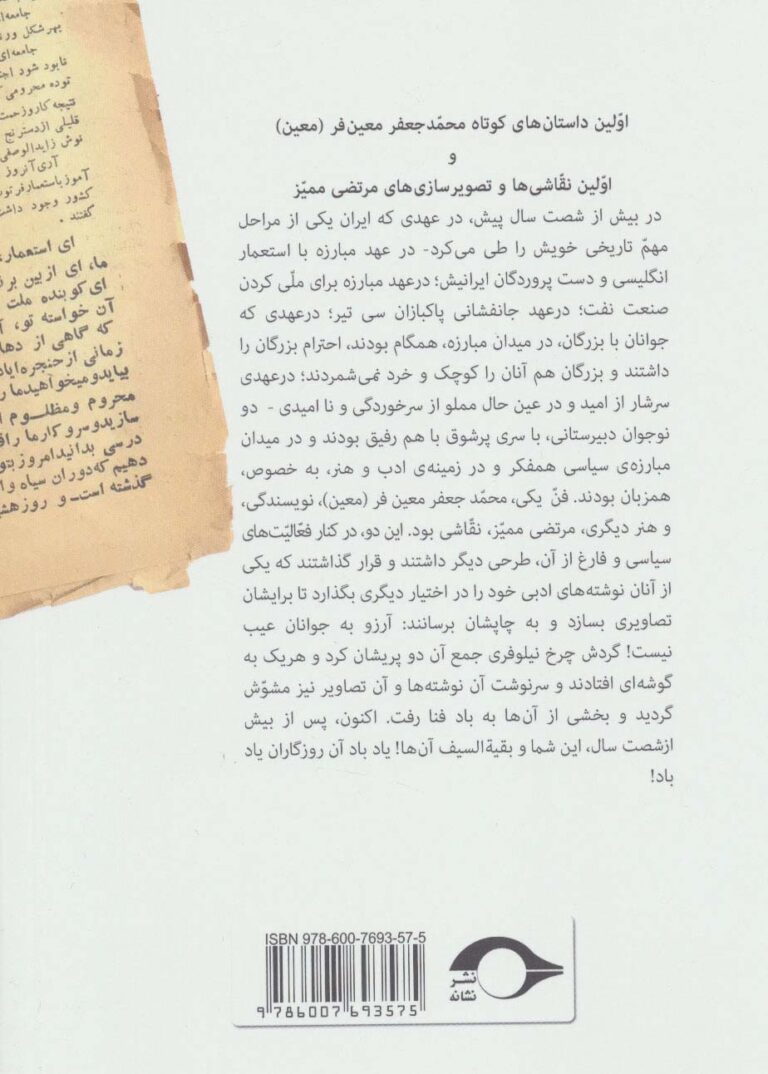 جامعه‌ا
بهر شکل ور
جامعه‌ای
نابود شود اجت
توده محرومی
نتیجه کاروزحمت
قلیلی ازدسترنج
نوش زایدالوصفی
آری‌آنروز
آموزبااستعمارفرتوت
کشور وجود داشت
گفتند .
ای استعمار،
ما، ای ازبین بر
ای‌کوبنده ملت
آن خواسته تو، آ
که گاهی از دها
زمانی ازحنجره‌ایاد
بیایدومیخواهیدما را
محروم ومظلوم ا
سازیدوسرو کارما راق
درسی بدانیدامروز بتو
دهیم که‌دوران سیاه وا
گذشته است- و روزهش
اوّلین داستان‌های کوتاه محمّدجعفر معین‌فر (معین)
و
اوّلین نقّاشی‌ها و تصویرسازی‌های مرتضی ممیّز
در بیش از شصت سال پیش، در عهدی که ایران یکی از مراحل
مهمّ تاریخی خویش را طی می‌کرد- در عهد مبارزه با استعمار
انگلیسی و دست پروردگان ایرانیش؛ درعهد مبارزه برای ملّی کردن
صنعت نفت؛ درعهد جانفشانی پاکبازان سی تیر؛ درعهدی که
جوانان با بزرگان، در میدان مبارزه، همگام بودند، احترام بزرگان را
داشتند و بزرگان هم آنان را کوچک و خرد نمی‌شمردند؛ درعهدی
سرشار از امید و در عین حال مملو از سرخوردگی و نا امیدی - دو
نوجوان دبیرستانی، با سری پرشوق با هم رفیق بودند و در میدان
مبارزه‌ی سیاسی همفکر و در زمینه‌ی ادب و هنر، به خصوص،
همزبان بودند. فنّ یکی، محمّد جعفر معین فر (معین)، نویسندگی،
و هنر دیگری، مرتضی ممیّز، نقّاشی بود. این دو، در کنار فعّالیّت‌های
سیاسی و فارغ از آن، طرحی دیگر داشتند و قرار گذاشتند که یکی
از آنان نوشته‌های ادبی خود را در اختیار دیگری بگذارد تا برایشان
تصاویری بسازد و به چاپشان برسانند: آرزو به جوانان عیب
نیست! گردش چرخ نیلوفری جمع آن دو پریشان کرد و هریک به
گوشه‌ای افتادند و سرنوشت آن نوشته‌ها و آن تصاویر نیز مشوّش
گردید و بخشی از آن‌ها به باد فنا رفت. اکنون، پس از بیش
ازشصت سال، این شما و بقیة‌السیف آن‌ها! یاد باد آن روزگاران یاد
باد!
ISBN 978-600-7693-57-5
9 786007 693575
نشر
نشانه